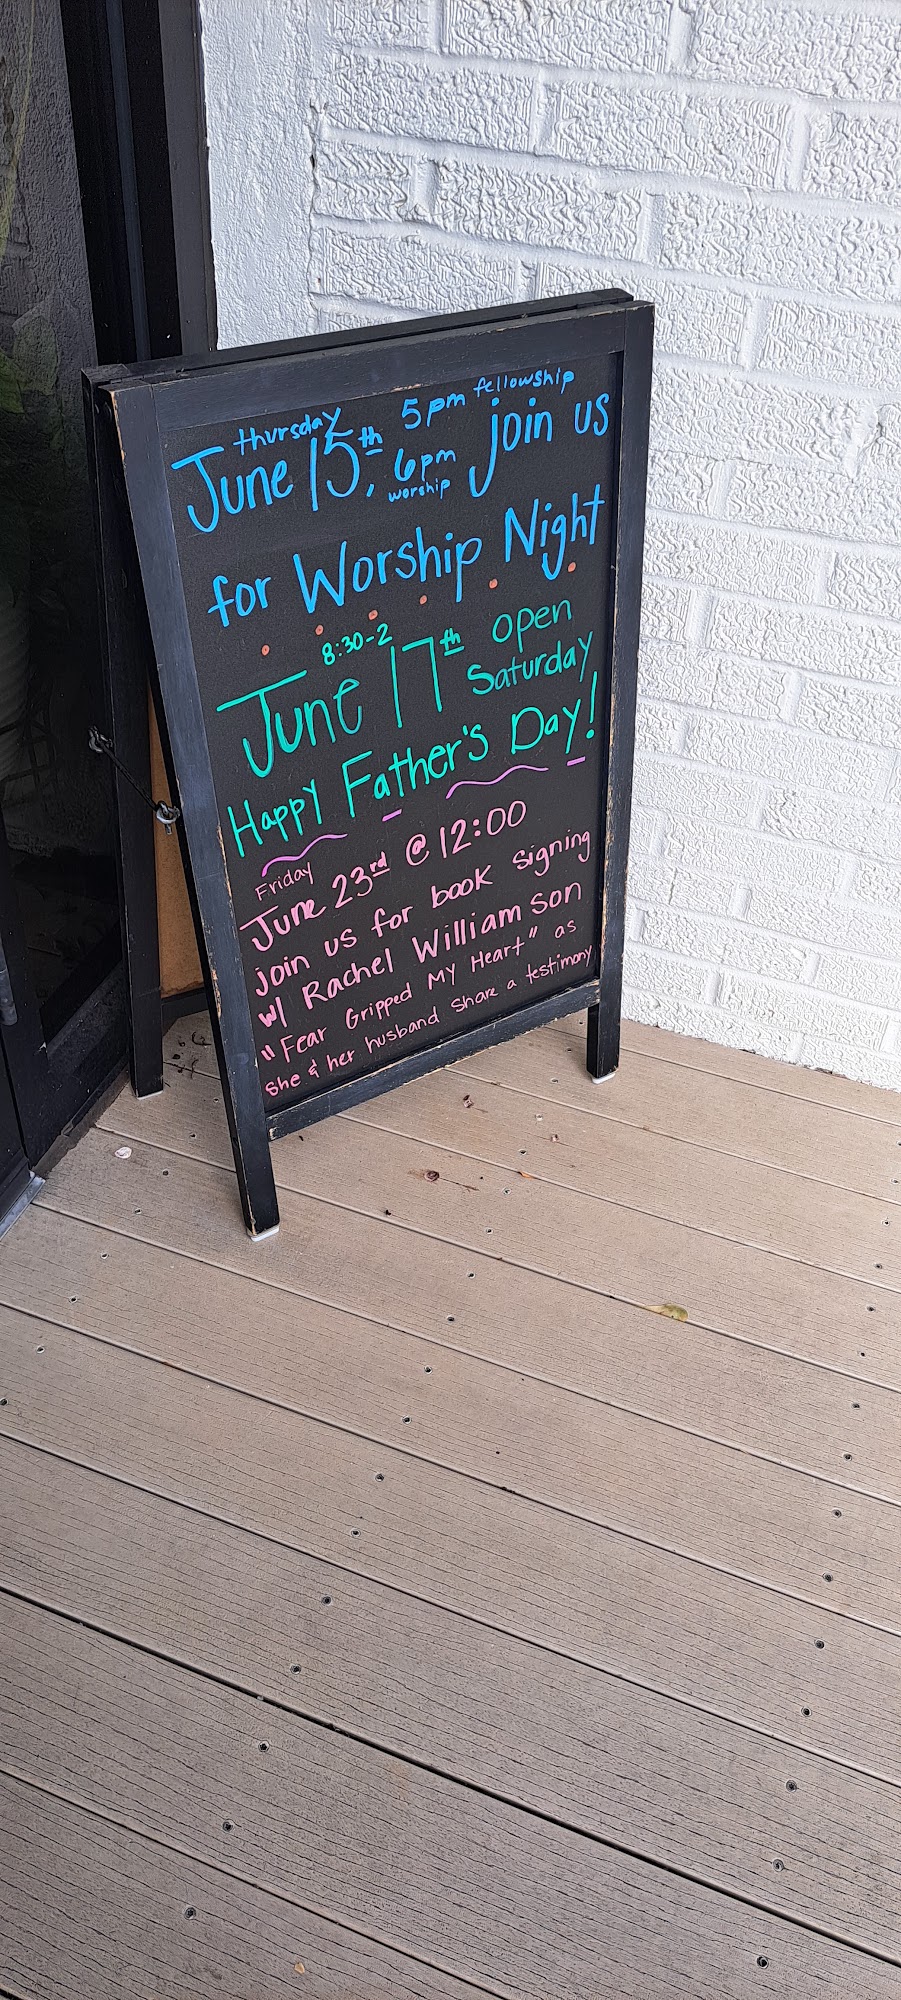 thursday 5pm fellowship
June 15th, 6pm worship join us
for Worship Night
8:30-2
June 17th open Saturday
Happy Father's Day!
Friday
June 23rd @ 12:00
join us for book signing
w/ Rachel Williamson
"Fear Gripped My Heart" as
she & her husband share a testimony